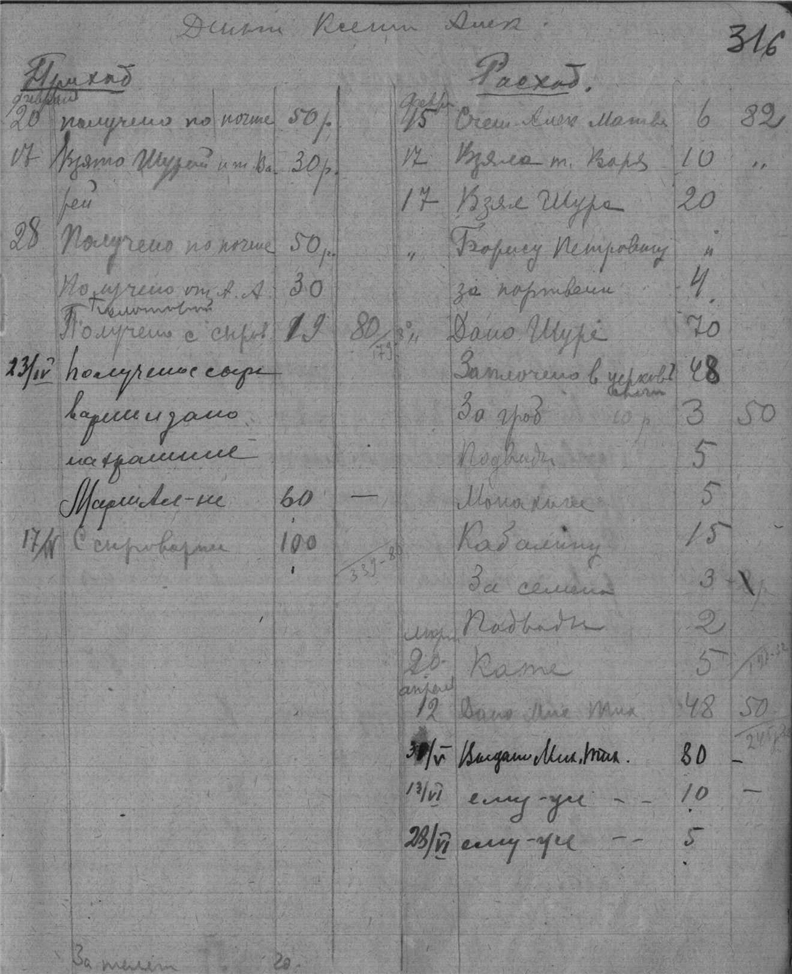 Деньги Ксении Алек.
316
Приход
февраля
20 получено по почте 50 р.
17 Взято Шурой и т. Ва- 30 р.
рей
28 Получено по почте 50 р.
Получено от А. А. 30
Получено с сыров 19 80
179
23/IV Получено с сыро
варни и дано
на хранение
Марии Ал-не 60 —
17/IV С сыроварни 100
339-80
За телят 20.
Расход.
февр.
15 Алек Матв 6 82
17 Взяла т. Варя 10 "
17 Взял Шура 20
" Борису Петровичу "
за портвейн 4.
" Дано Шуре 70
Заплочено в церковь 48
За гроб 10 р 3 50
Подводы 5
Монашке 5
Кабалину 15
За семена 3
Подводы 2
март
20 Кате 5
апреля
12 Дано Мих Тих 48 50
30/V Выдано Мих. Тих. 80 –
13/VI ему-же – – 10 –
28/VI ему-же – – 5